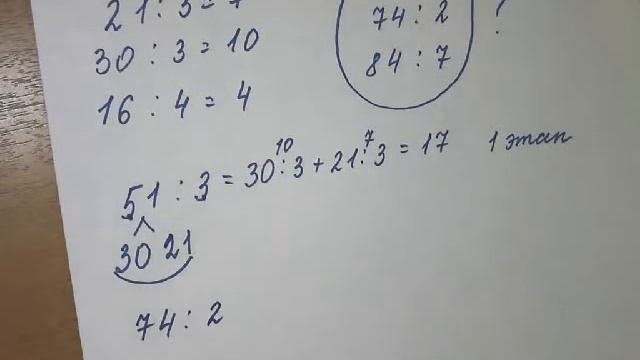 21 : 3 = 7
30 : 3 = 10
16 : 4 = 4
74 : 2
84 : 7
?
10 7
51 : 3 = 30 : 3 + 21 : 3 = 17 1 этап
30 21
74 : 2